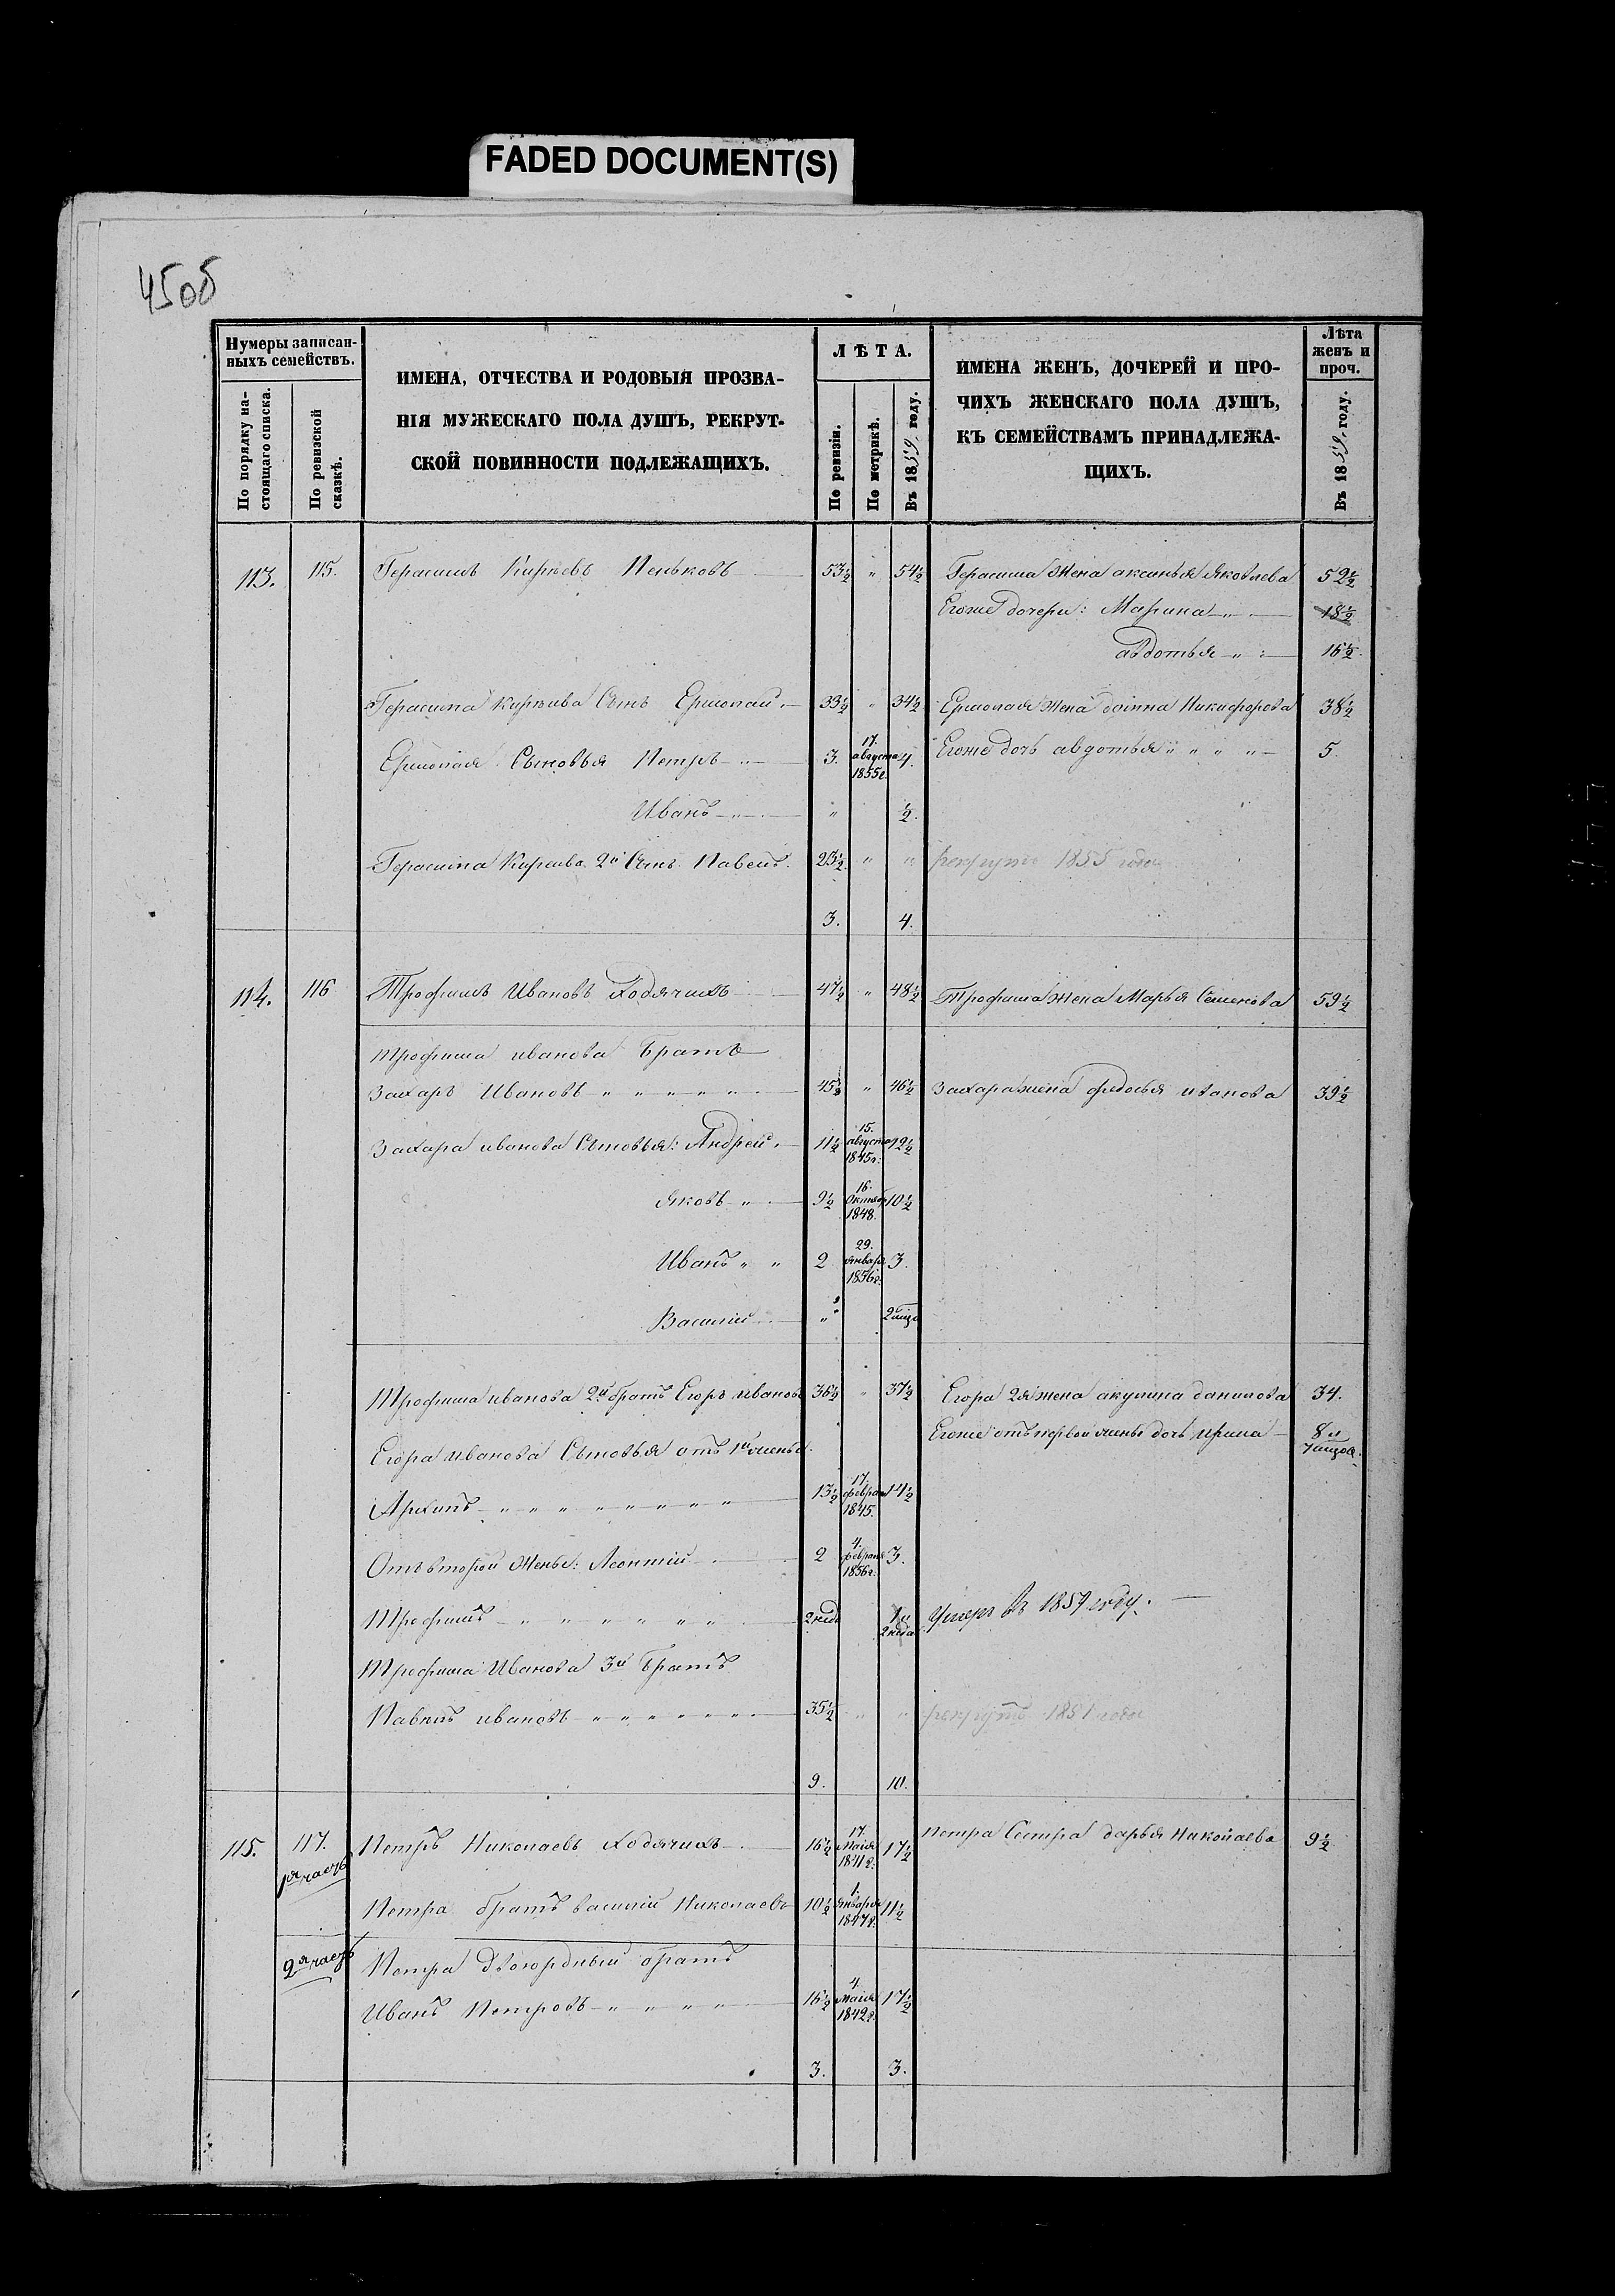 FADED DOCUMENT(S)
45об
Нумеры записан-
ныхъ семействъ.
По порядку на-
стоящаго списка.
По ревизской
сказкѣ.
ИМЕНА, ОТЧЕСТВА И РОДОВЫЯ ПРОЗВА-
НІЯ МУЖЕСКАГО ПОЛА ДУШЪ, РЕКРУТ-
СКОЙ ПОВИННОСТИ ПОДЛЕЖАЩИХЪ.
ЛѢТА.
По ревизіи.
По метрикѣ.
Въ 1859 году.
ИМЕНА ЖЕНЪ, ДОЧЕРЕЙ И ПРО-
ЧИХЪ ЖЕНСКАГО ПОЛА ДУШЪ,
КЪ СЕМЕЙСТВАМЪ ПРИНАДЛЕЖА-
ЩИХЪ.
Лѣта
женъ и
проч.
Въ 1859 году.
113. 115. Герасимъ Кирѣевъ Пеньковъ 53½ " 54½ Герасима Жена аксинья Яковлева 52½
Егоже дочери: Марина " 18½
авдотья " 16½
Герасима Кирѣива Сынъ Ермолай 33½ " 34½ Ермолая Жена Никифорова 38½
Ермолая Сыновья Петръ " 3. 17. августа 1855г. 4. Егоже дочь авдотья " " " " 5.
Иванъ " " ½.
Герасима Кирѣива 2й Сынъ Павелъ. 25½ " " рекрутъ 1855 года
3. 4.
114. 116 Трофимъ Ивановъ Ходячихъ 47½ " 48½ Трофима жена Марья Семенова 59½
Трофима иванова Братъ
Захаръ Ивановъ " " " " " 45½ " 46½ Захара жена федосья иванова 39½
Захара иванова Сыновья: Андрей 11½ 15. августа 1845г. 12½
Яковъ " 9½ 16. Октяб 1848. 10½
Иванъ " " 2 29. января 1856г. 3.
Василий " 2 мцо
Трофима иванова 2й братъ Егоръ ивановъ 36½ " 37½ Егора 2я жена акулина данилова 34.
Егора иванова Сыновья отъ 1й жены Егоже отъ первой жены дочь ирина 8 и 7 мцов.
Архипъ " " " " " " " " 13½ 17. феврал 1845. 14½
Отъ второй Жены: Леонтий 2 4. февраля 1856г. 3.
Трофимъ " " " " " " 2 нед 1 и 2 неде Умеръ въ 1857 году.
Трофима Иванова 3й Братъ
Павелъ ивановъ " " " " " " " 35½ " " рекрутъ 1851 года
9. 10.
115. 117. Петръ Николаевъ Ходячихъ 16½ 17. Маия 1841г. 17½ Петра Сестра дарья Николаева 9½
1я часть
Петра братъ василий Николаевъ 10½ 1. января 1847г. 11½
2я часть Петра Двоюрдный братъ
Иванъ Петровъ " " " " 16½ 4. Маия 1842г. 17½
3. 3.